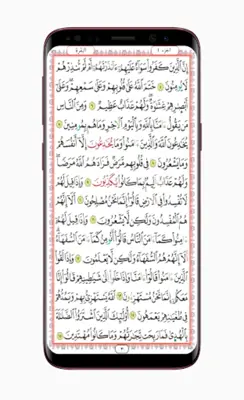 الجزء ١ البقرة
إِنَّ الذِينَ كَفَرُوا سَوَآءٌ عَلَيْهِمُۥٓ ءَآنذَرْتَهُمُۥٓ أَمْ لَمْ تُنذِرْهُمْ
لَا يُومِنُونَ خَتَمَ اَللَّهُ عَلَىٰ قُلُوبِهِمْ وَعَلَىٰ سَمْعِهِمْ وَعَلَىٰٓ
أَبْصَٰرِهِمْ غِشَٰوَةٌ وَلَهُمْ عَذَابٌ عَظِيمٌ وَمِنَ اَلنَّاسِ
مَنْ يَّقُولُ ءَامَنَّا بِاللَّهِ وَبِالْيَوْمِ اِلَاخِرِ وَمَا هُم بِمُومِنِينَ
يُخَٰدِعُونَ اَللَّهَ وَالذِينَ ءَامَنُوا وَمَا يُخَٰدِعُونَ إِلَّآ أَنفُسَهُمْ
وَمَا يَشْعُرُونَ فِي قُلُوبِهِم مَّرَضٌ فَزَادَهُمُ اُللَّهُ مَرَضًا
وَلَهُمْ عَذَابٌ اَلِيمٌۢ بِمَا كَانُوا يُكَذِّبُونَ وَإِذَا قِيلَ لَهُمْ
لَا تُفْسِدُوا فِي اِلَارْضِ قَالُوٓا إِنَّمَا نَحْنُ مُصْلِحُونَ أَلَآ إِنَّهُمْ
هُمُ اُلْمُفْسِدُونَ وَلَٰكِن لَّا يَشْعُرُونَ وَإِذَا قِيلَ لَهُمُۥٓ
ءَامِنُوا كَمَآ ءَامَنَ اَلنَّاسُ قَالُوٓا أَنُومِنُ كَمَآ ءَامَنَ اَلسُّفَهَآءُ
اَلَآ إِنَّهُمْ هُمُ اُلسُّفَهَآءُ وَلَٰكِن لَّا يَعْلَمُونَ وَإِذَا لَقُوا
الذِينَ ءَامَنُوا قَالُوٓا ءَامَنَّا وَإِذَا خَلَوِا اِلَىٰ شَيَٰطِينِهِمْ قَالُوٓا إِنَّا
مَعَكُمُۥٓ إِنَّمَا نَحْنُ مُسْتَهْزِءُونَ اَللَّهُ يَسْتَهْزِئُ بِهِمْ وَيَمُدُّهُمْ
فِي طُغْيَٰنِهِمْ يَعْمَهُونَ أُوْلَٰٓئِكَ اَلذِينَ اَشْتَرَوُا اُلضَّلَٰلَةَ
بِالْهُدَىٰ فَمَا رَبِحَت تِّجَٰرَتُهُمْ وَمَا كَانُوا مُهْتَدِينَ